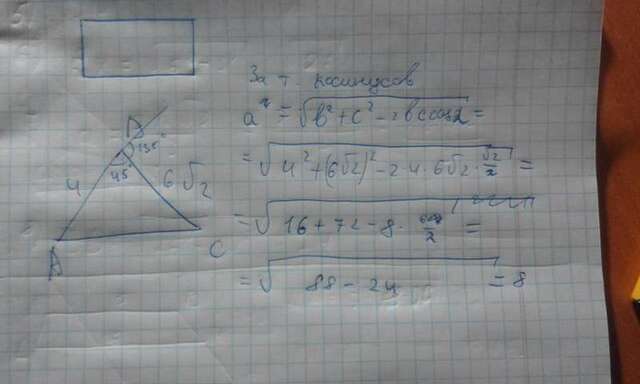 A
4
B
45°
135°
6√2
C
За т. косинусов
a² = √b² + c² - 2bc cosα =
= √4² + (6√2)² - 2·4·6√2·√2/2 =
= √16 + 72 - 8·
= √88 - 24 = 8